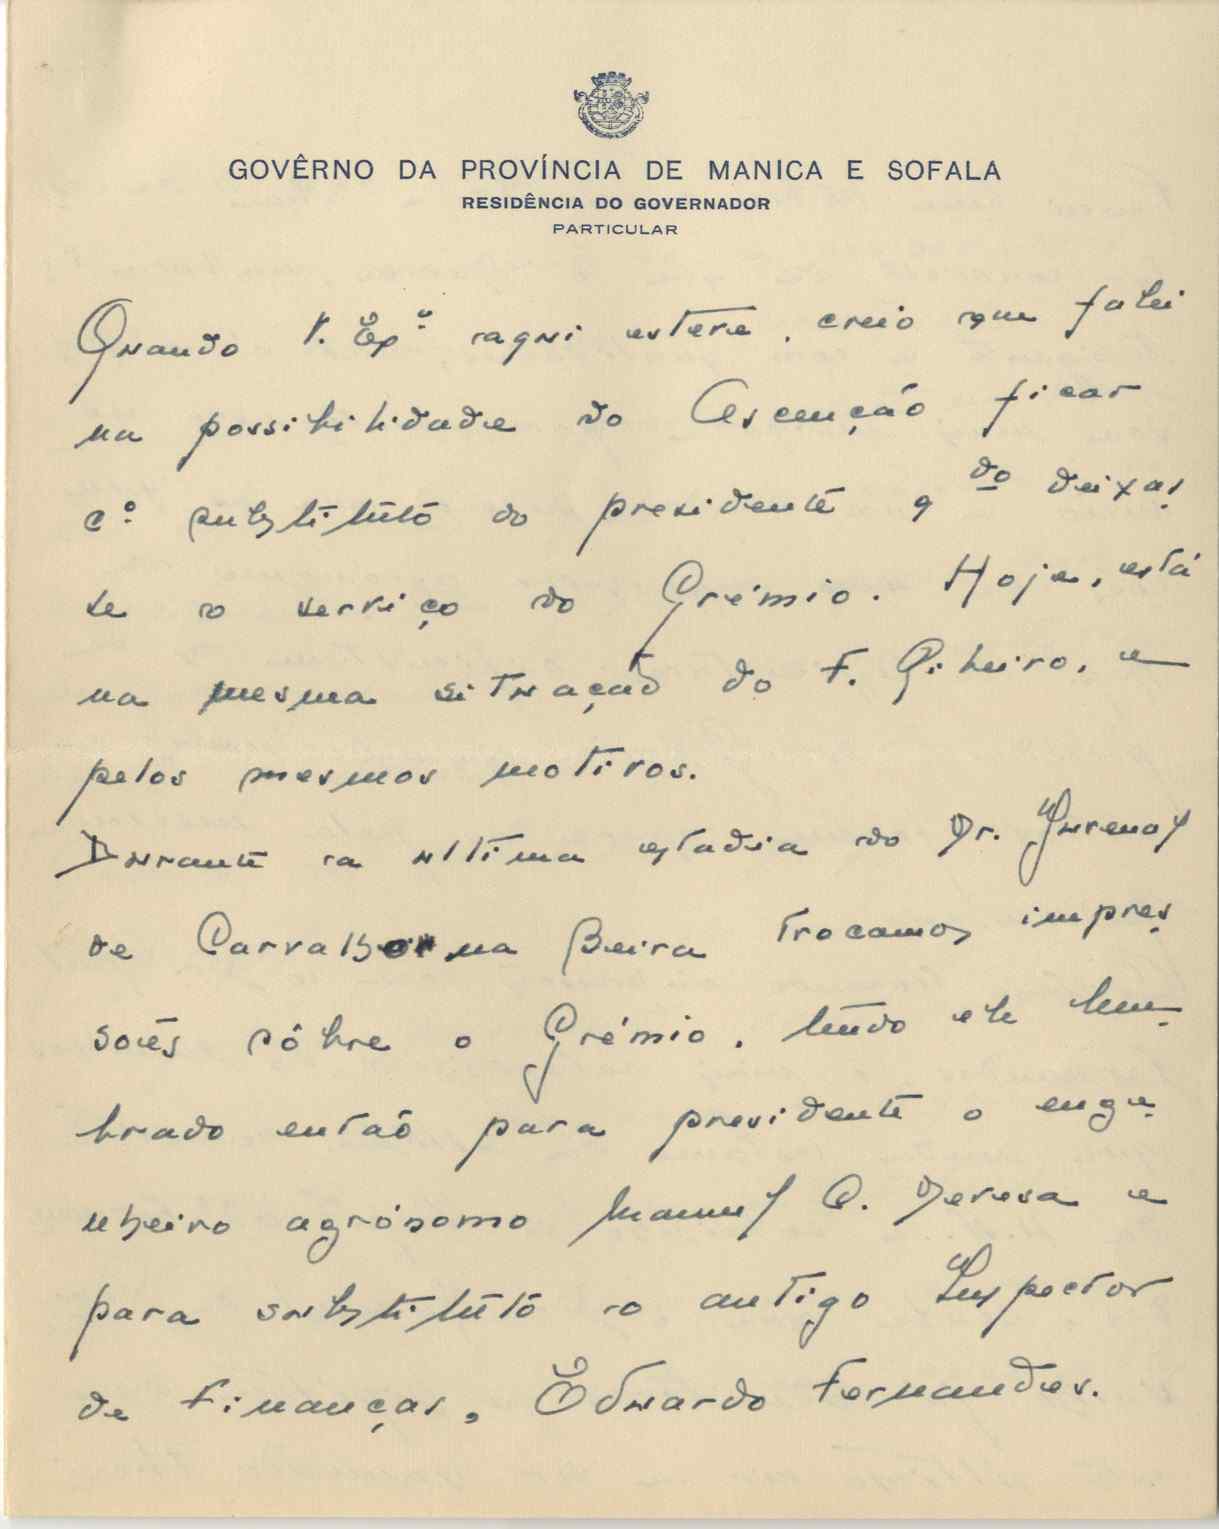 GOVÊRNO DA PROVÍNCIA DE MANICA E SOFALA
RESIDÊNCIA DO GOVERNADOR
PARTICULAR
Quando V. Exª aqui esteve, creio que falei
na possibilidade do Ascenção ficar
cº substituto do presidente qdo deixas
se o serviço do Grémio. Hoje, está
na mesma situação do F. Ribeiro, e
pelos mesmos motivos.
Durante a ultima estadia do Dr. Juvenal
de Carvalho na Beira trocamos impres
sões sôbre o Grémio, tendo ele lem-
brado então para presidente o enge-
nheiro agrónomo Manuel Teresa e
para substituto o antigo Inspector
de Finanças, Eduardo Fernandes.